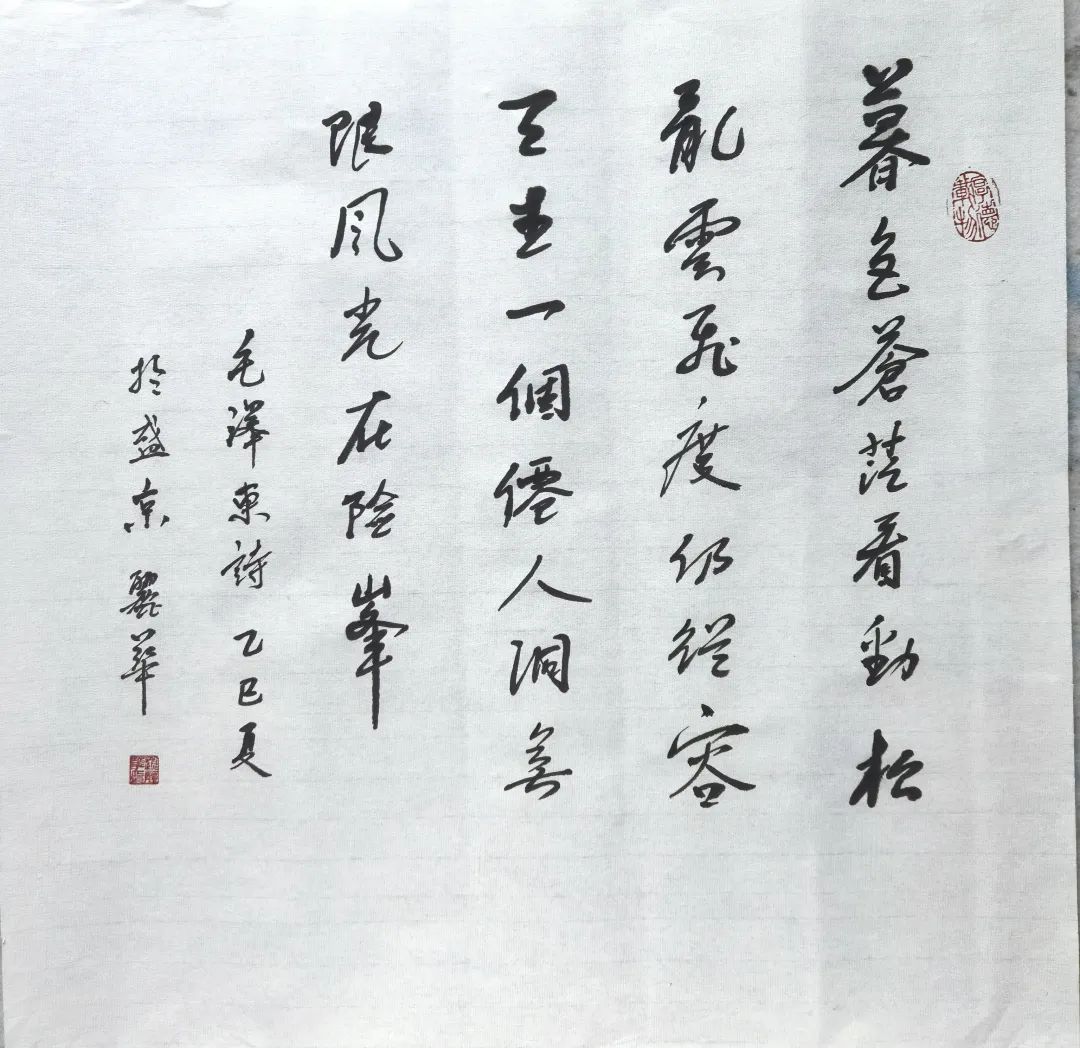 厚德載物
暮色蒼茫看勁松
亂雲飛度仍從容
天生一個僊人洞無
限風光在險峯
毛澤東詩 乙巳夏
於盛京 麗華